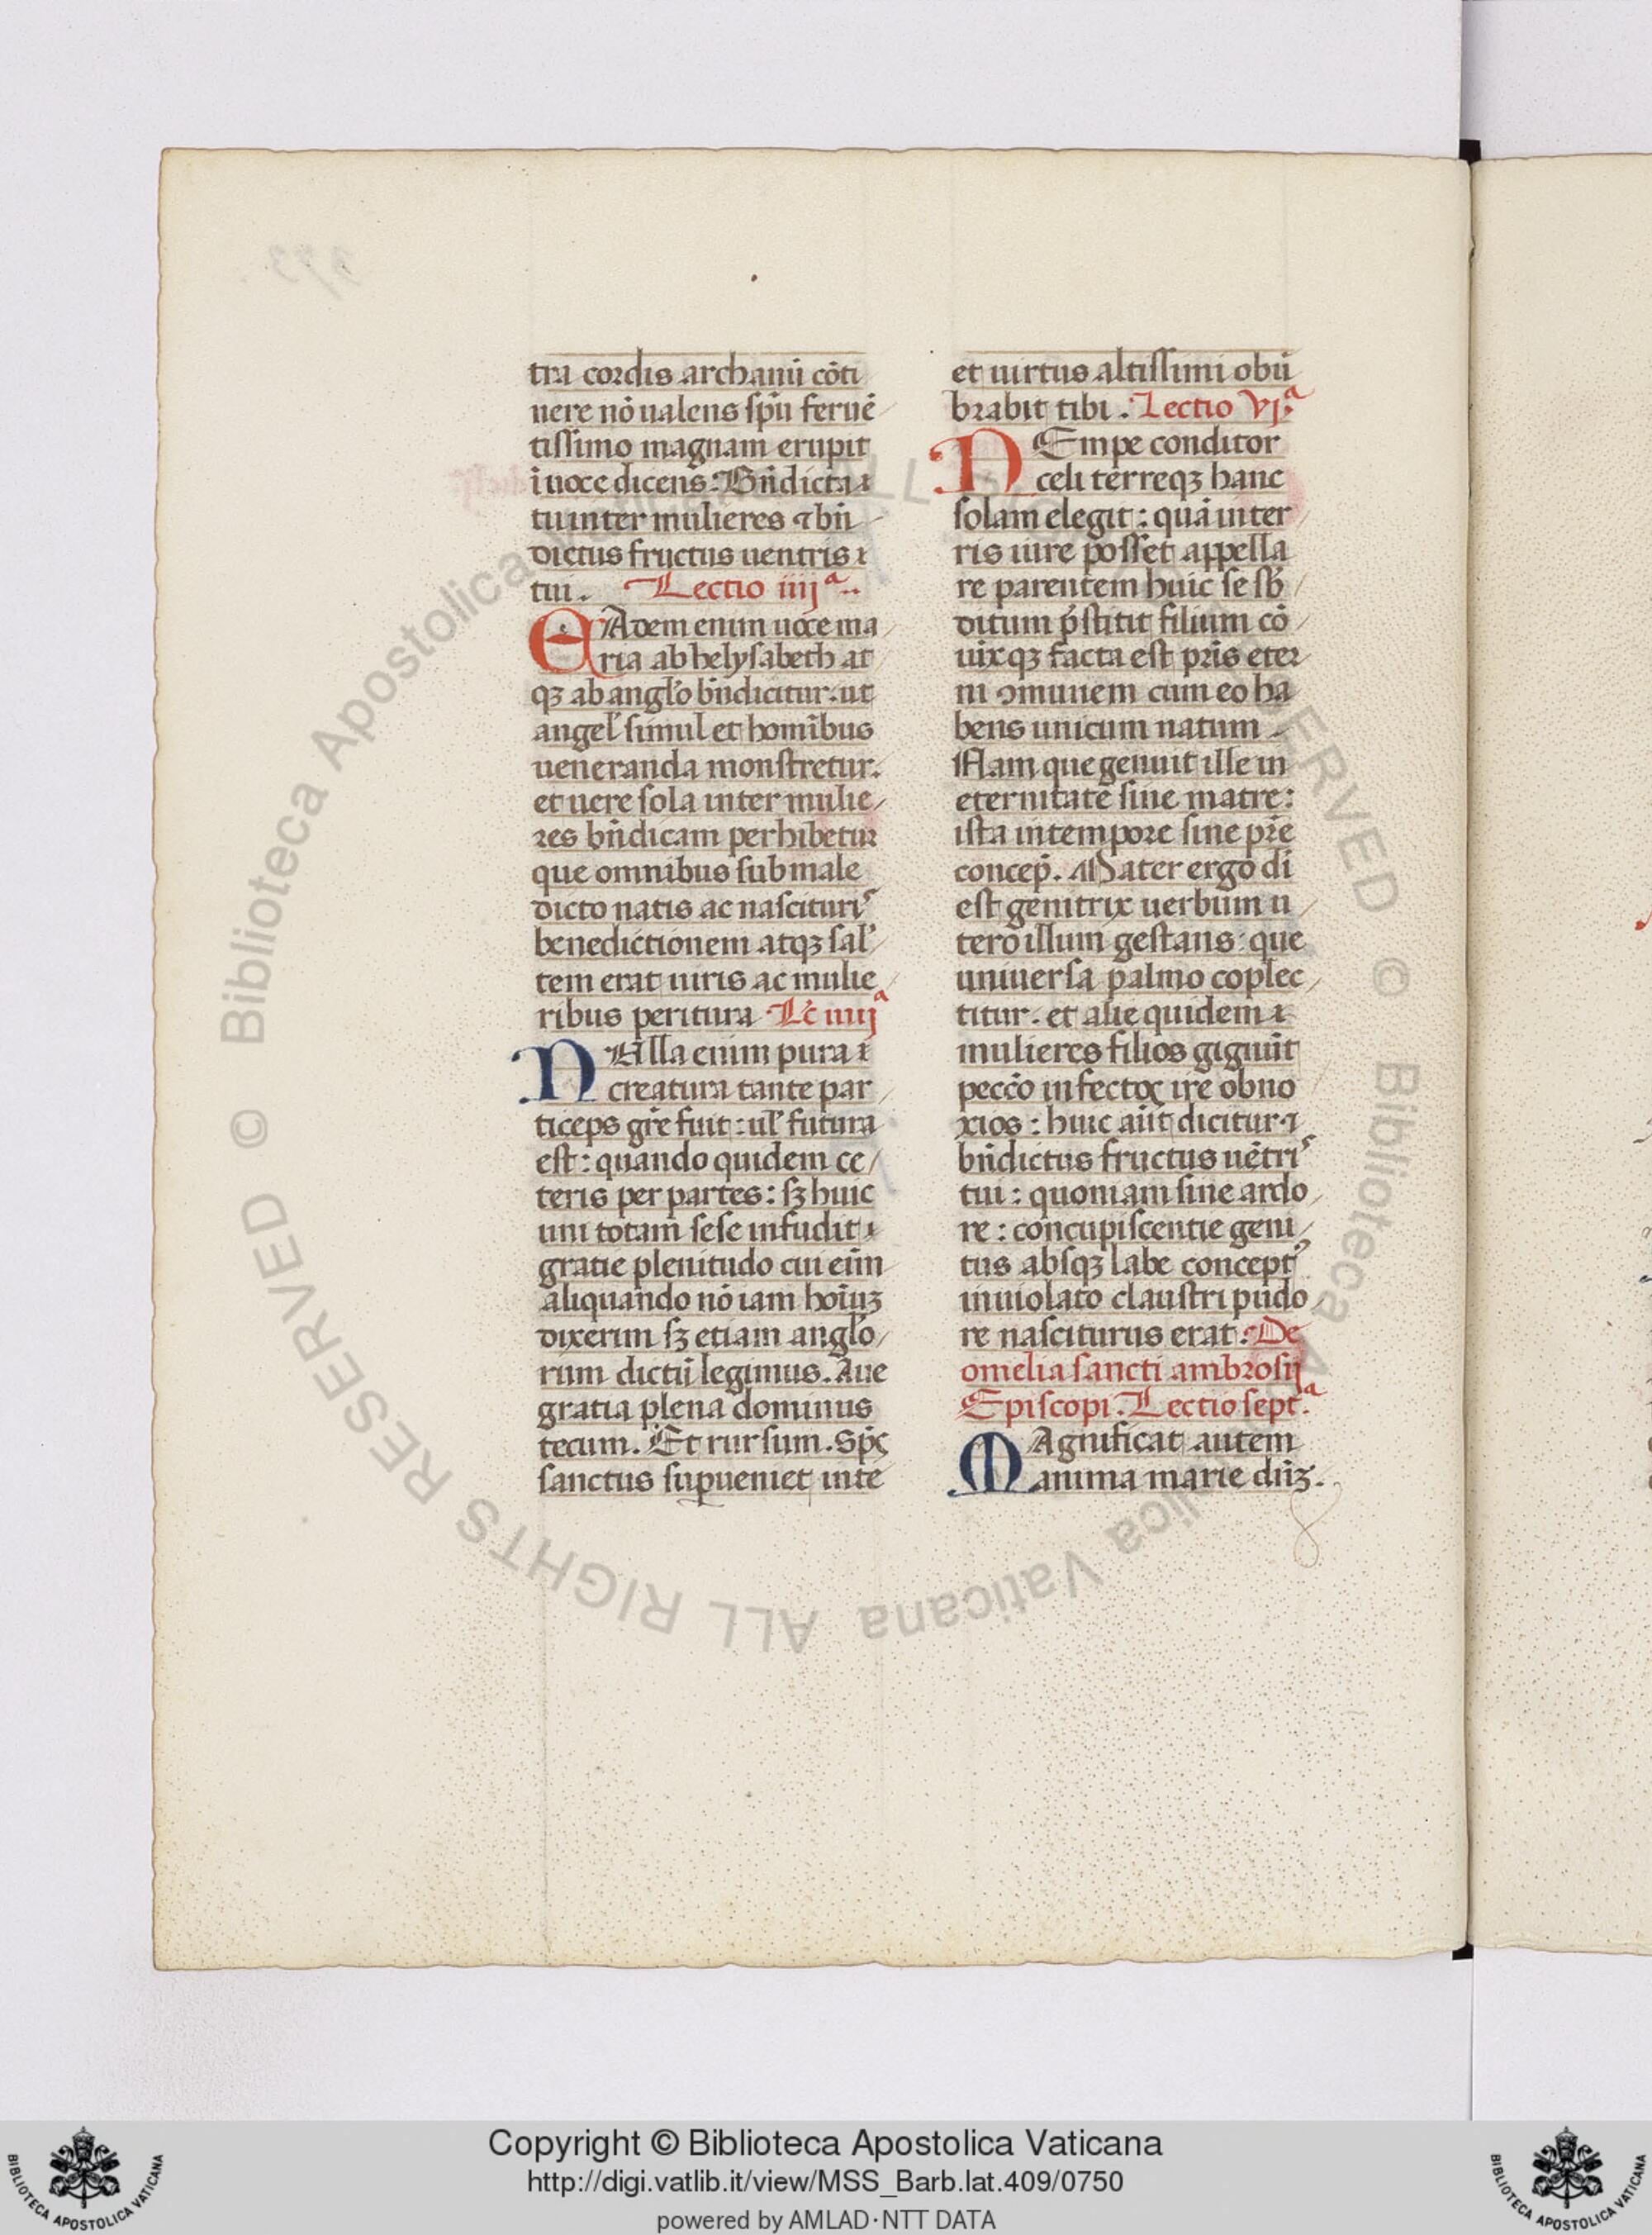 tra cordis archanū cōti
nere nō ualens spū feruē
tissimo magnam erupit
ī uoce dicens: Bn̄dicta
tu inter mulieres ⁊ bn̄
dictus fructus uentris
tui. Lectio iiijᵃ..
EAdem enim uoce ma
ria ab helysabeth at
qꝫ ab angl̓o bn̄dicitur. ut
angel̓ simul et homībus
ueneranda monstretur.
et uere sola inter mulie
res bn̄dicam perhibetur
que omnibus sub male
dicto natis ac nascituri᾿
benedictionem atqꝫ sal̓
tem erat uiris ac mulie
ribus peritura Lc̄ iiiijᵃ
NUlla enim pura
creatura tante par
ticeps gr̄e fuit: ul̓ futura
est: quando quidem ce
teris per partes: sꝫ huic
uni totam sese infudit
gratie plenitudo cui eīm
aliquando nō iam hoīuꝫ
dixerim sꝫ etiam angl̓o
rum dictū legimus. Aue
gratia plena dominus
tecum. Et rursum. Sp̄c
sanctus suꝑueniet in te
et uirtus altissimi obū
brabit tibi. Lectio VI.ᵃ
NEmpe conditor
celi terreqꝫ hanc
solam elegit: quā in ter
ris iure posset appella
re parentem huic se sb̄
ditum p̄stitit filium cō
uixqꝫ facta est pr̄is eter
ni ꝯmunem cum eo ha
bens unicum natum
Nam que genuit ille in
eternitate sine matre:
ista in tempore sine pr̄e
concep̄. Mater ergo di
est genitrix uerbum u
tero illum gestans: que
uniuersa palmo coplec
titur. et alie quidem
mulieres filios gignūt
pecc̄o infectoꝝ ire obno
xios: huic aūt dicitur
bn̄dictus fructus uētri᾿
tui: quoniam sine ardo
re: concupiscentie geni
tus absqꝫ labe concept᾿
inuiolato claustri pudo
re nasciturus erat. De
omelia sancti ambrosij
Episcopi. Lectio septᵃ.
MAgnificat autem
anima marie dn̄ꝫ.
© Biblioteca Apostolica Vaticana ALL RIGHTS RESERVED © Biblioteca Apostolica Vaticana ALL RIGHTS RESERVED
Copyright © Biblioteca Apostolica Vaticana
http://digi.vatlib.it/view/MSS_Barb.lat.409/0750
powered by AMLAD·NTT DATA
BIBLIOTECA APOSTOLICA VATICANA
BIBLIOTECA APOSTOLICA VATICANA